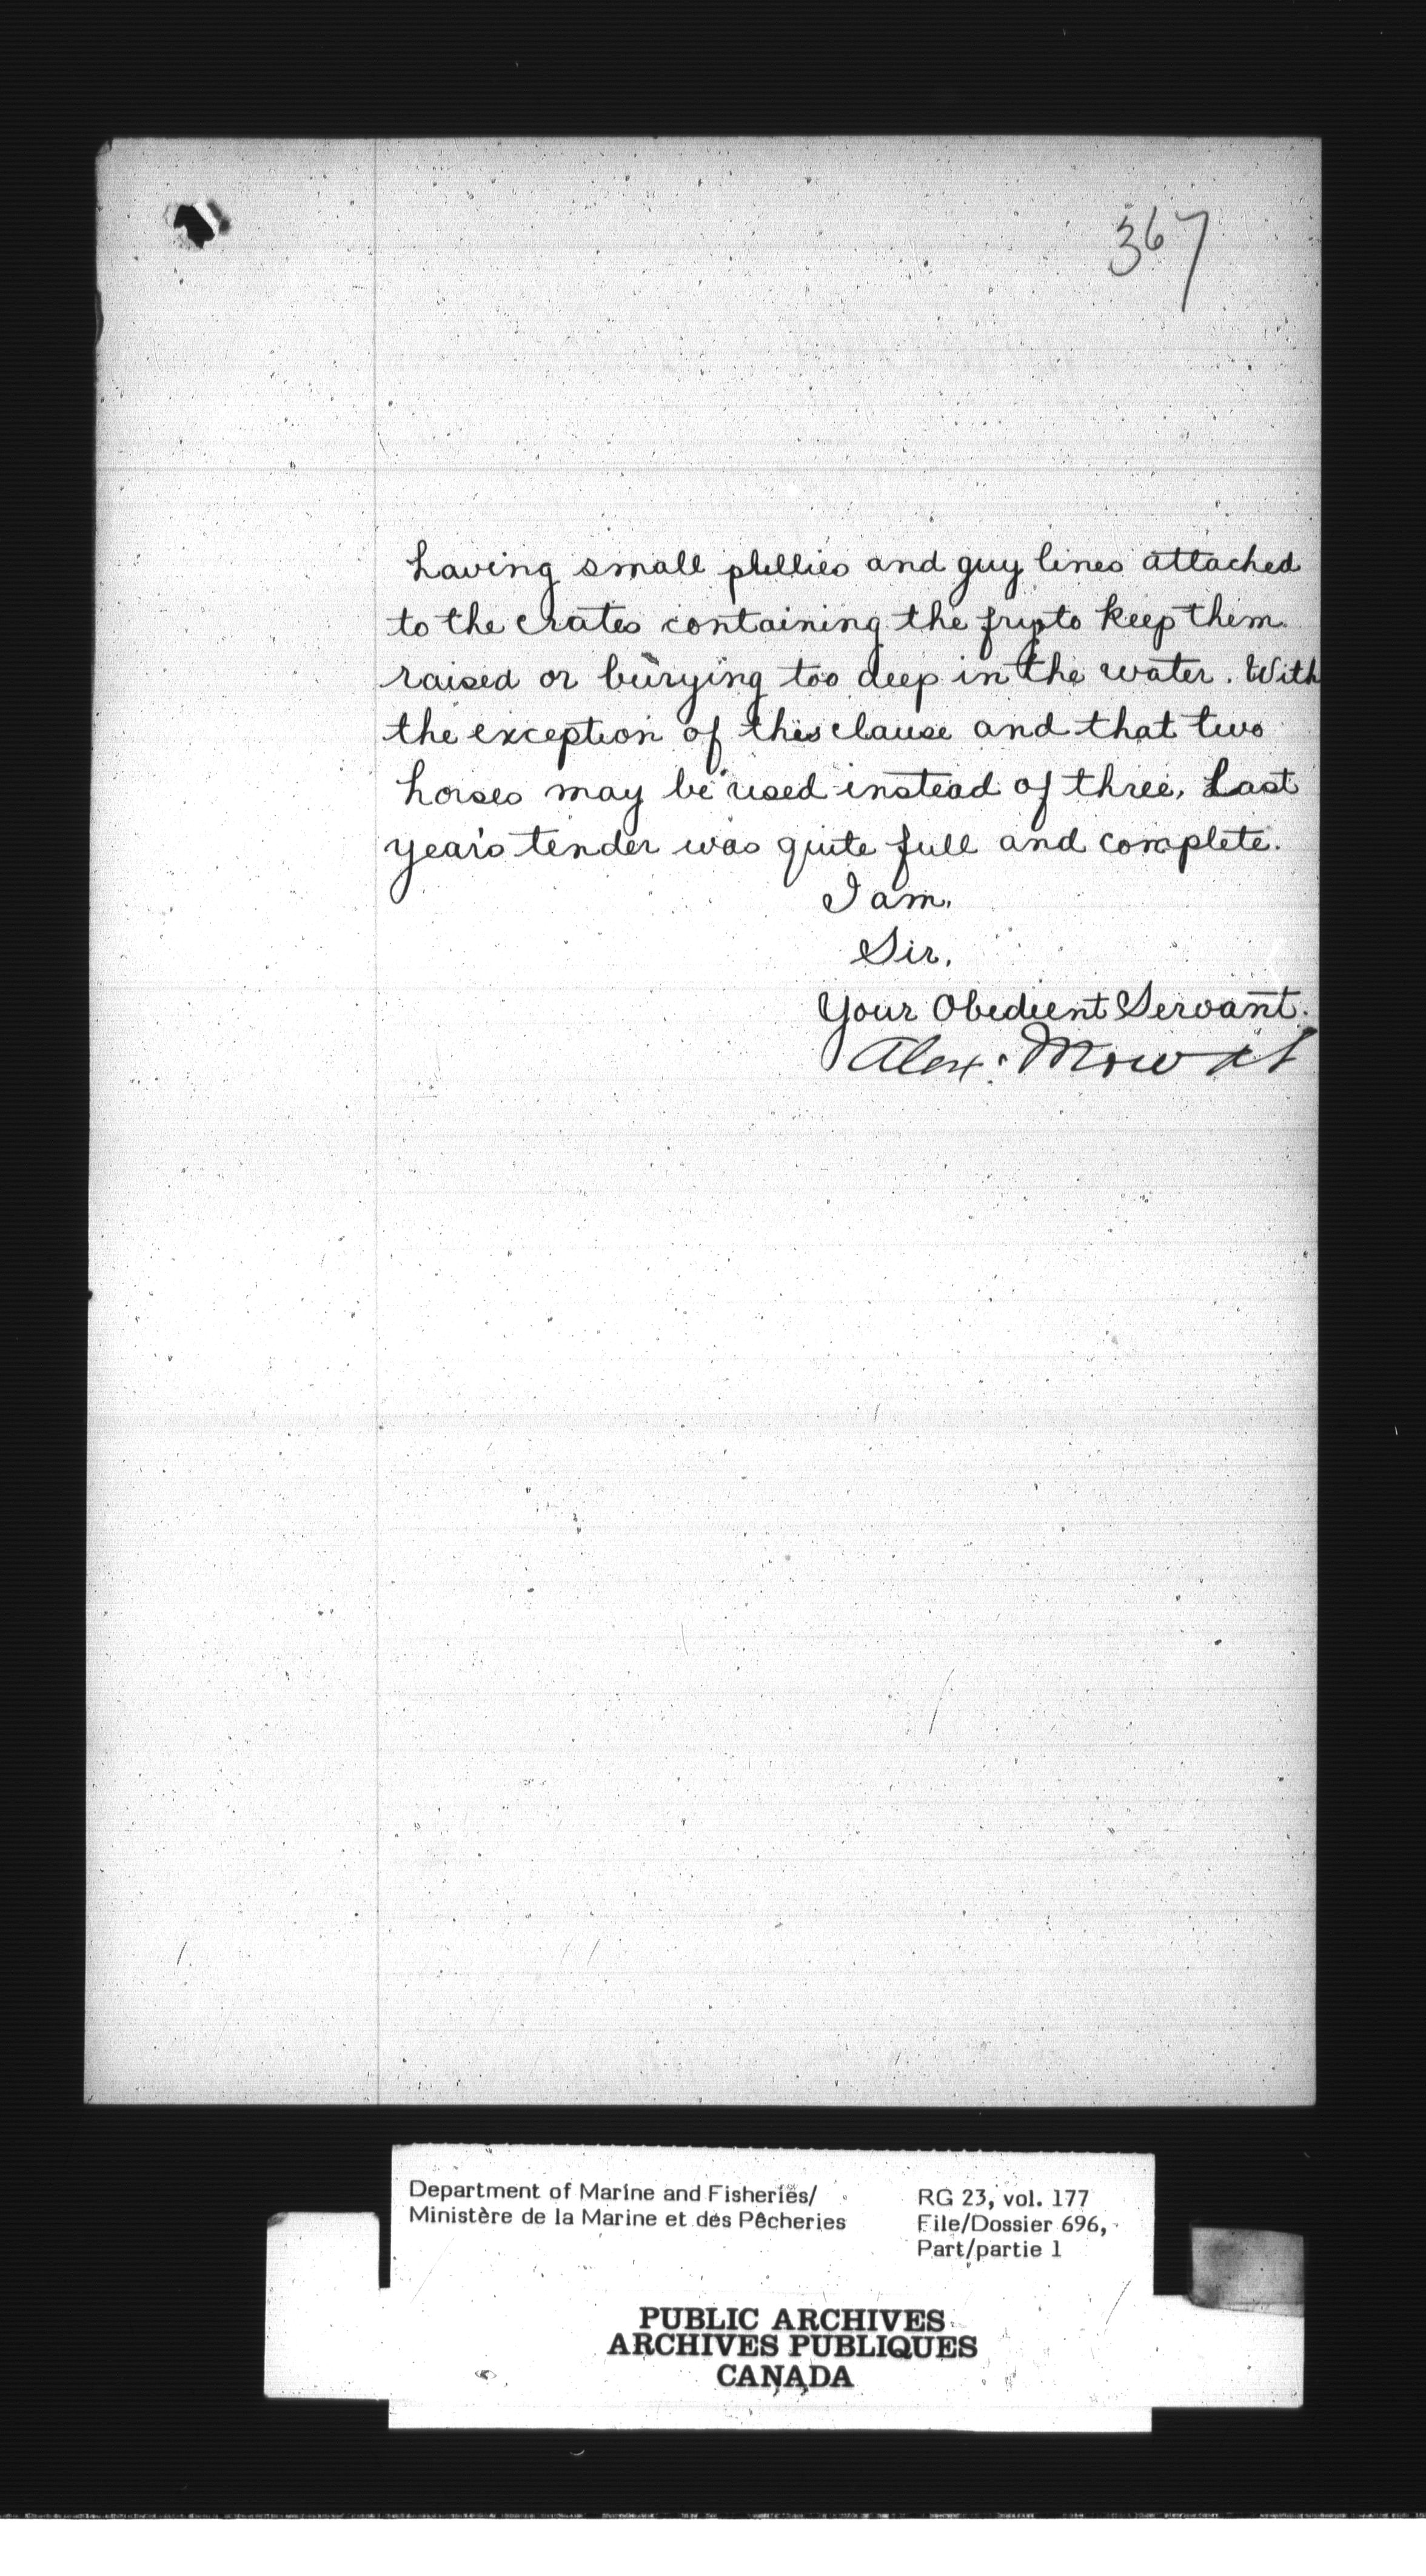 367
having small pullies and guy lines attached
to the crates containing the fry to keep them
raised or burying too deep in the water. With
the exception of this clause and that two
horses may be used instead of three, Last
year's tender was quite full and complete.
I am,
Sir,
Your Obedient Servant.
Alex: Mowat
Department of Marine and Fisheries/
Ministère de la Marine et des Pêcheries
RG 23, vol. 177
File/Dossier 696,
Part/partie 1
PUBLIC ARCHIVES
ARCHIVES PUBLIQUES
CANADA